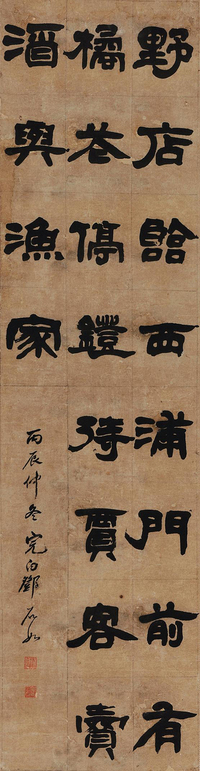 野店臨西浦門前有
橘花停鐙待賈客賣
酒與漁家
丙辰仲冬完白鄧石如